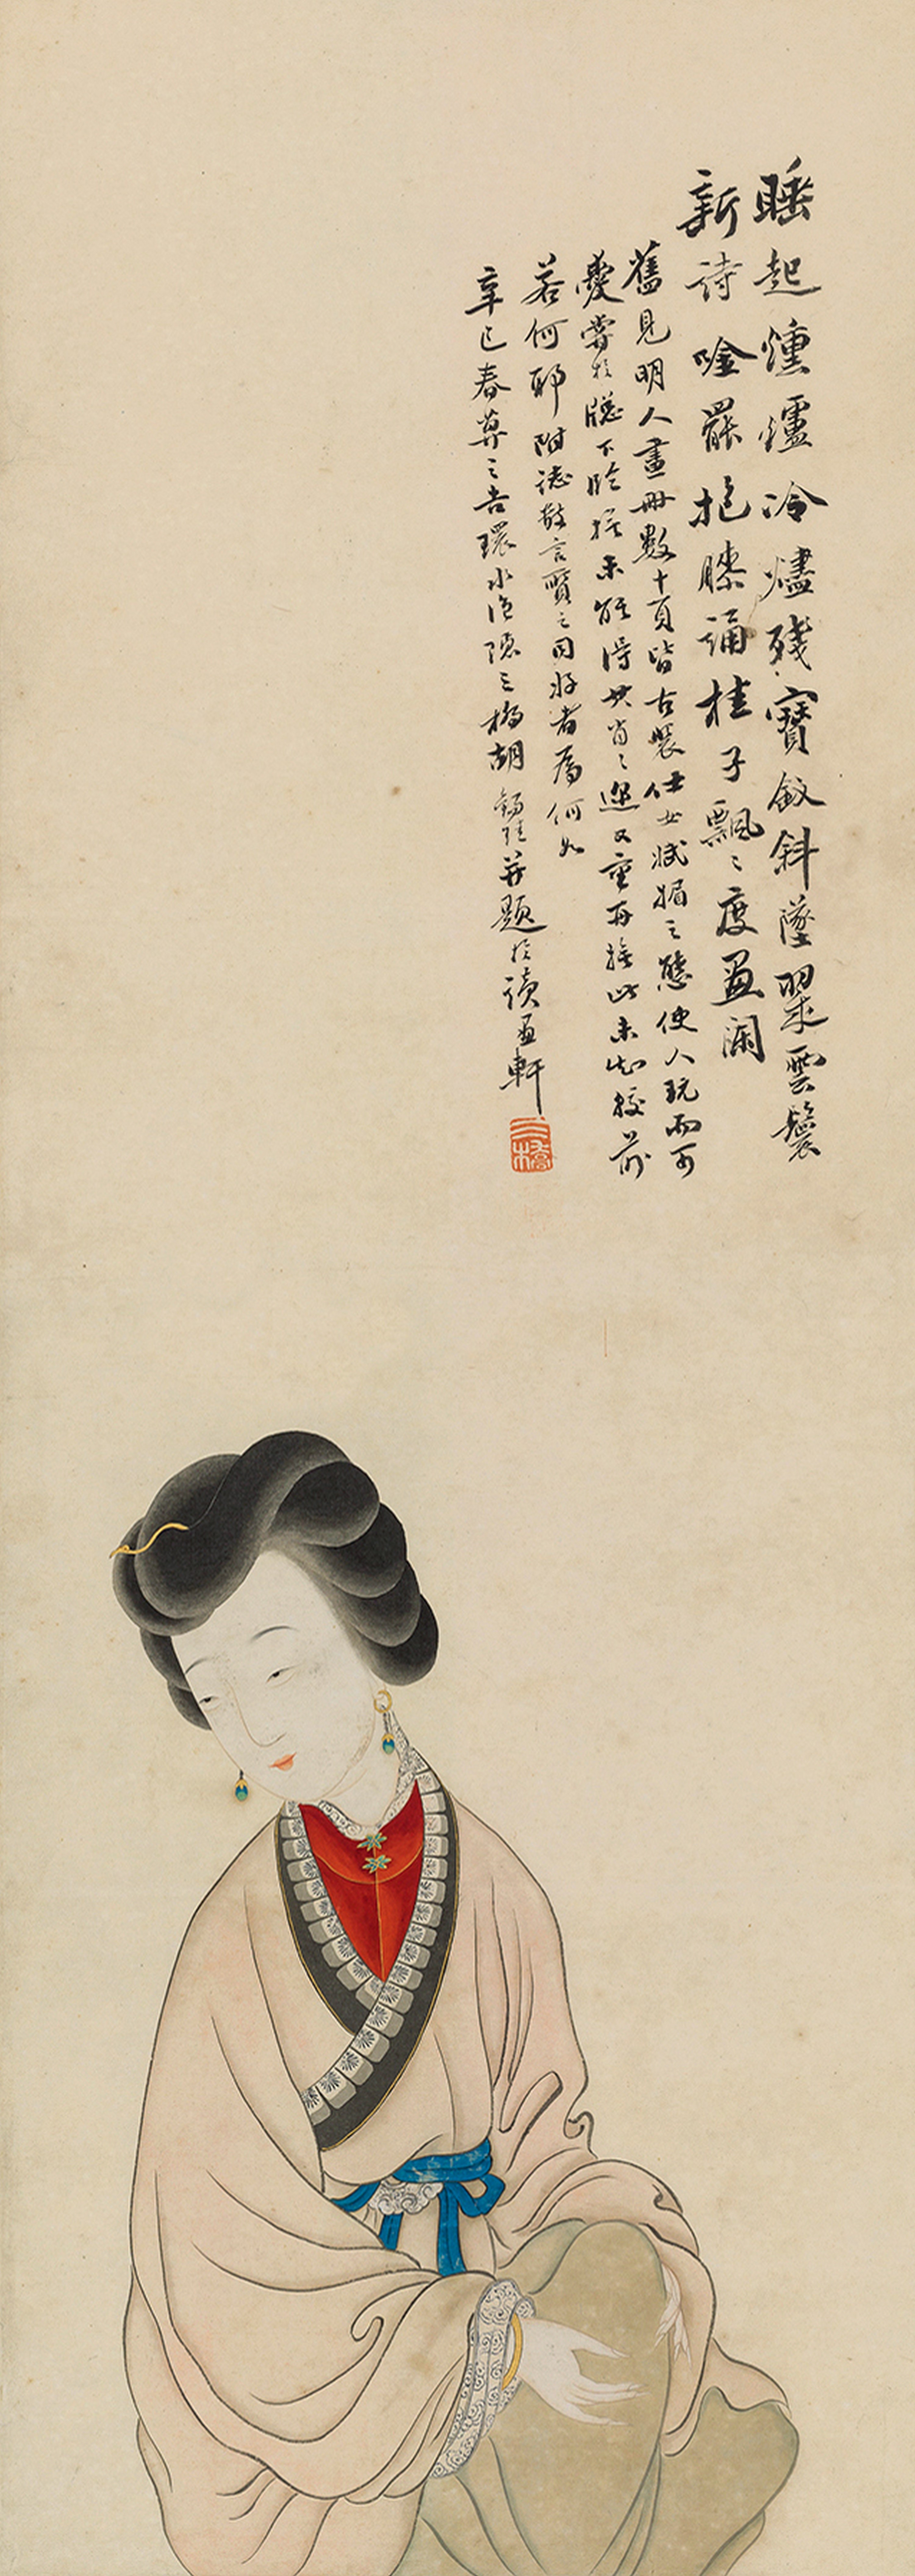 睡起熏爐冷燼殘寶釵斜墜翠雲鬟
新詩唫罷抱膝誦桂子飄〻度畫闌
舊見明人畫冊數十頁皆古裝仕女娬媚之態使人玩而可
愛嘗於牕下臨撫未能得其肖〻邇又重再撫此未知較前
若何耶附誌數言質之同好者為何如
辛巳春莫之吉環水漁隱三橋胡錫珪并題於讀畫軒
三橋